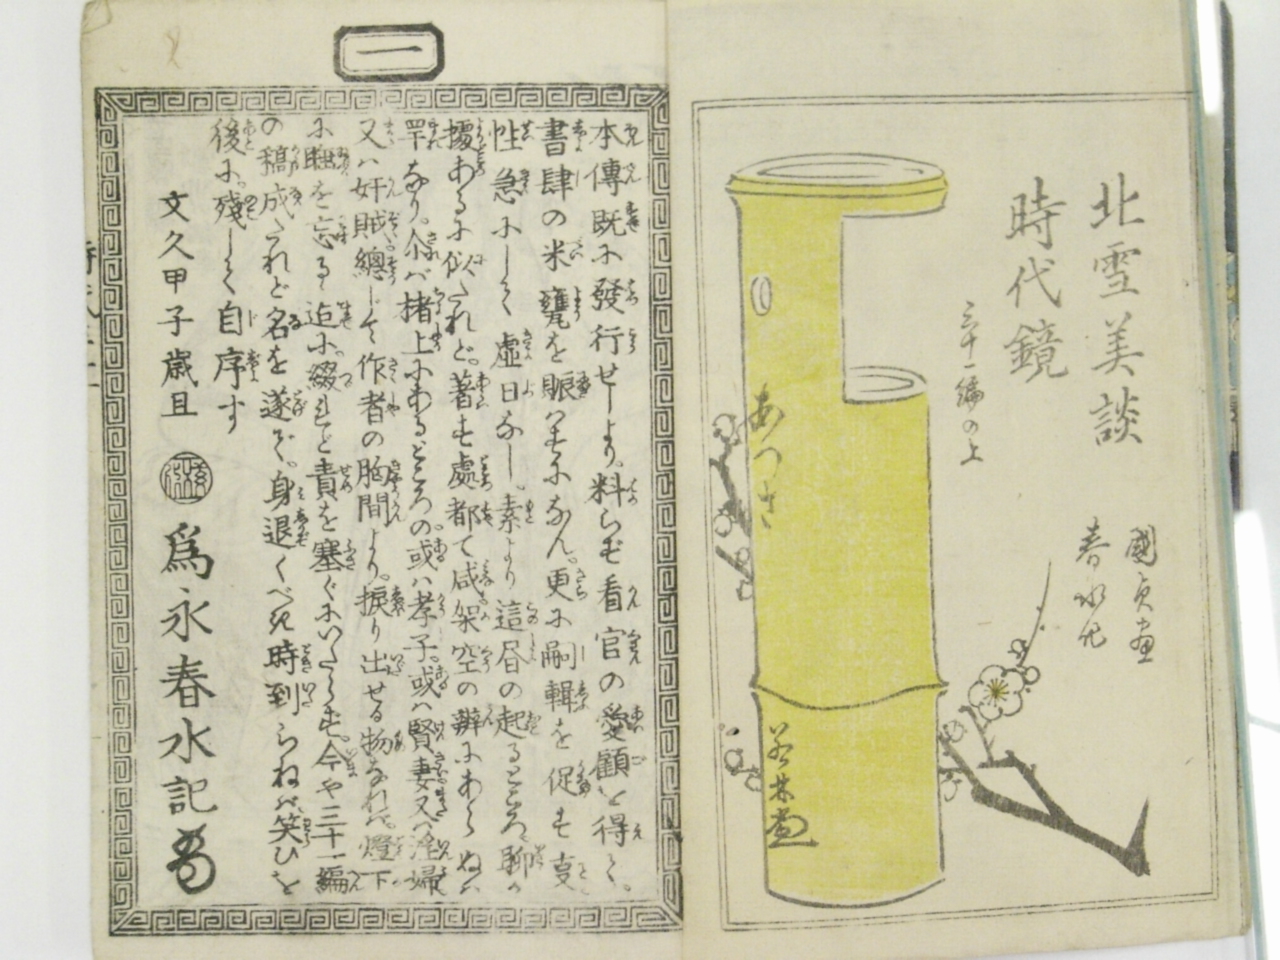 北雪美談
時代鏡
三十一編の上
國貞画
春水作
あつさ
一
本傳既に發行せしより。料らず看官の愛顧を得て。
書肆の米甕を賑はすになん。更に嗣輯を促も
性急にして虚日なし。素より這冊の起るところ。聊か
據あるに似たれど。著す處都て咸架空の辭にあらぬは
罕なり。尒ば楮上にあるところの。或ハ孝子。或ハ賢妻又ハ淫婦
又ハ奸賊總じて作者の胸間より。捩り出せる物なれば。燈下
に睡を忘るゝ迄に。綴れと責を塞ぐにいたらず。今や三十一編
の稿成たれど名を遂ず。身退くべき時到らねば。笑ひを
後に。殘して自序す
文久甲子歳旦
爲永春水記